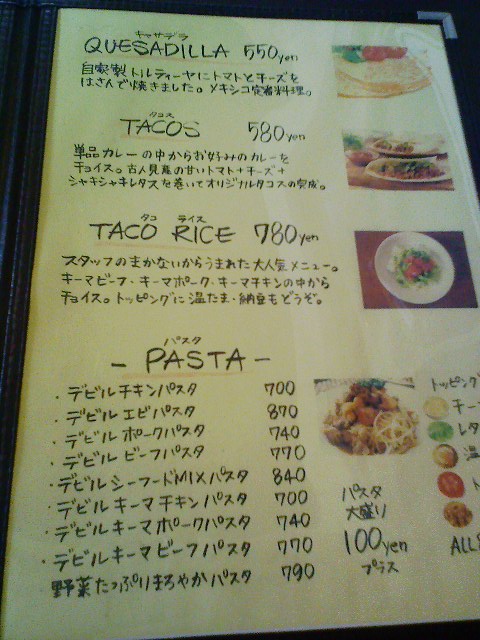 キャサデラ
QUESADILLA 550yen
自家製トルティーヤにトマトとチーズを
はさんで焼きました。メキシコ定番料理。
タコス
TACOS 580yen
単品カレーの中からお好みのカレーを
チョイス。古人見産の甘いトマト+チーズ+
シャキシャキレタスを巻いてオリジナルタコスの完成。
タコ ライス
TACO RICE 780yen
スタッフのまかないからうまれた大人気メニュー。
キーマビーフ・キーマポーク・キーマチキンの中から
チョイス。トッピングに温たま・納豆もどうぞ。
パスタ
- PASTA -
・デビルチキンパスタ 700
・デビルエビパスタ 870
・デビルポークパスタ 740
・デビルビーフパスタ 770
・デビルシーフードMIXパスタ 840
・デビルキーマチキンパスタ 700
・デビルキーマポークパスタ 740
・デビルキーマビーフパスタ 770
野菜たっぷりまろやかパスタ 790
パスタ
大盛り
100yen
プラス
トッピング
チー
レタ
温
ト
ALL